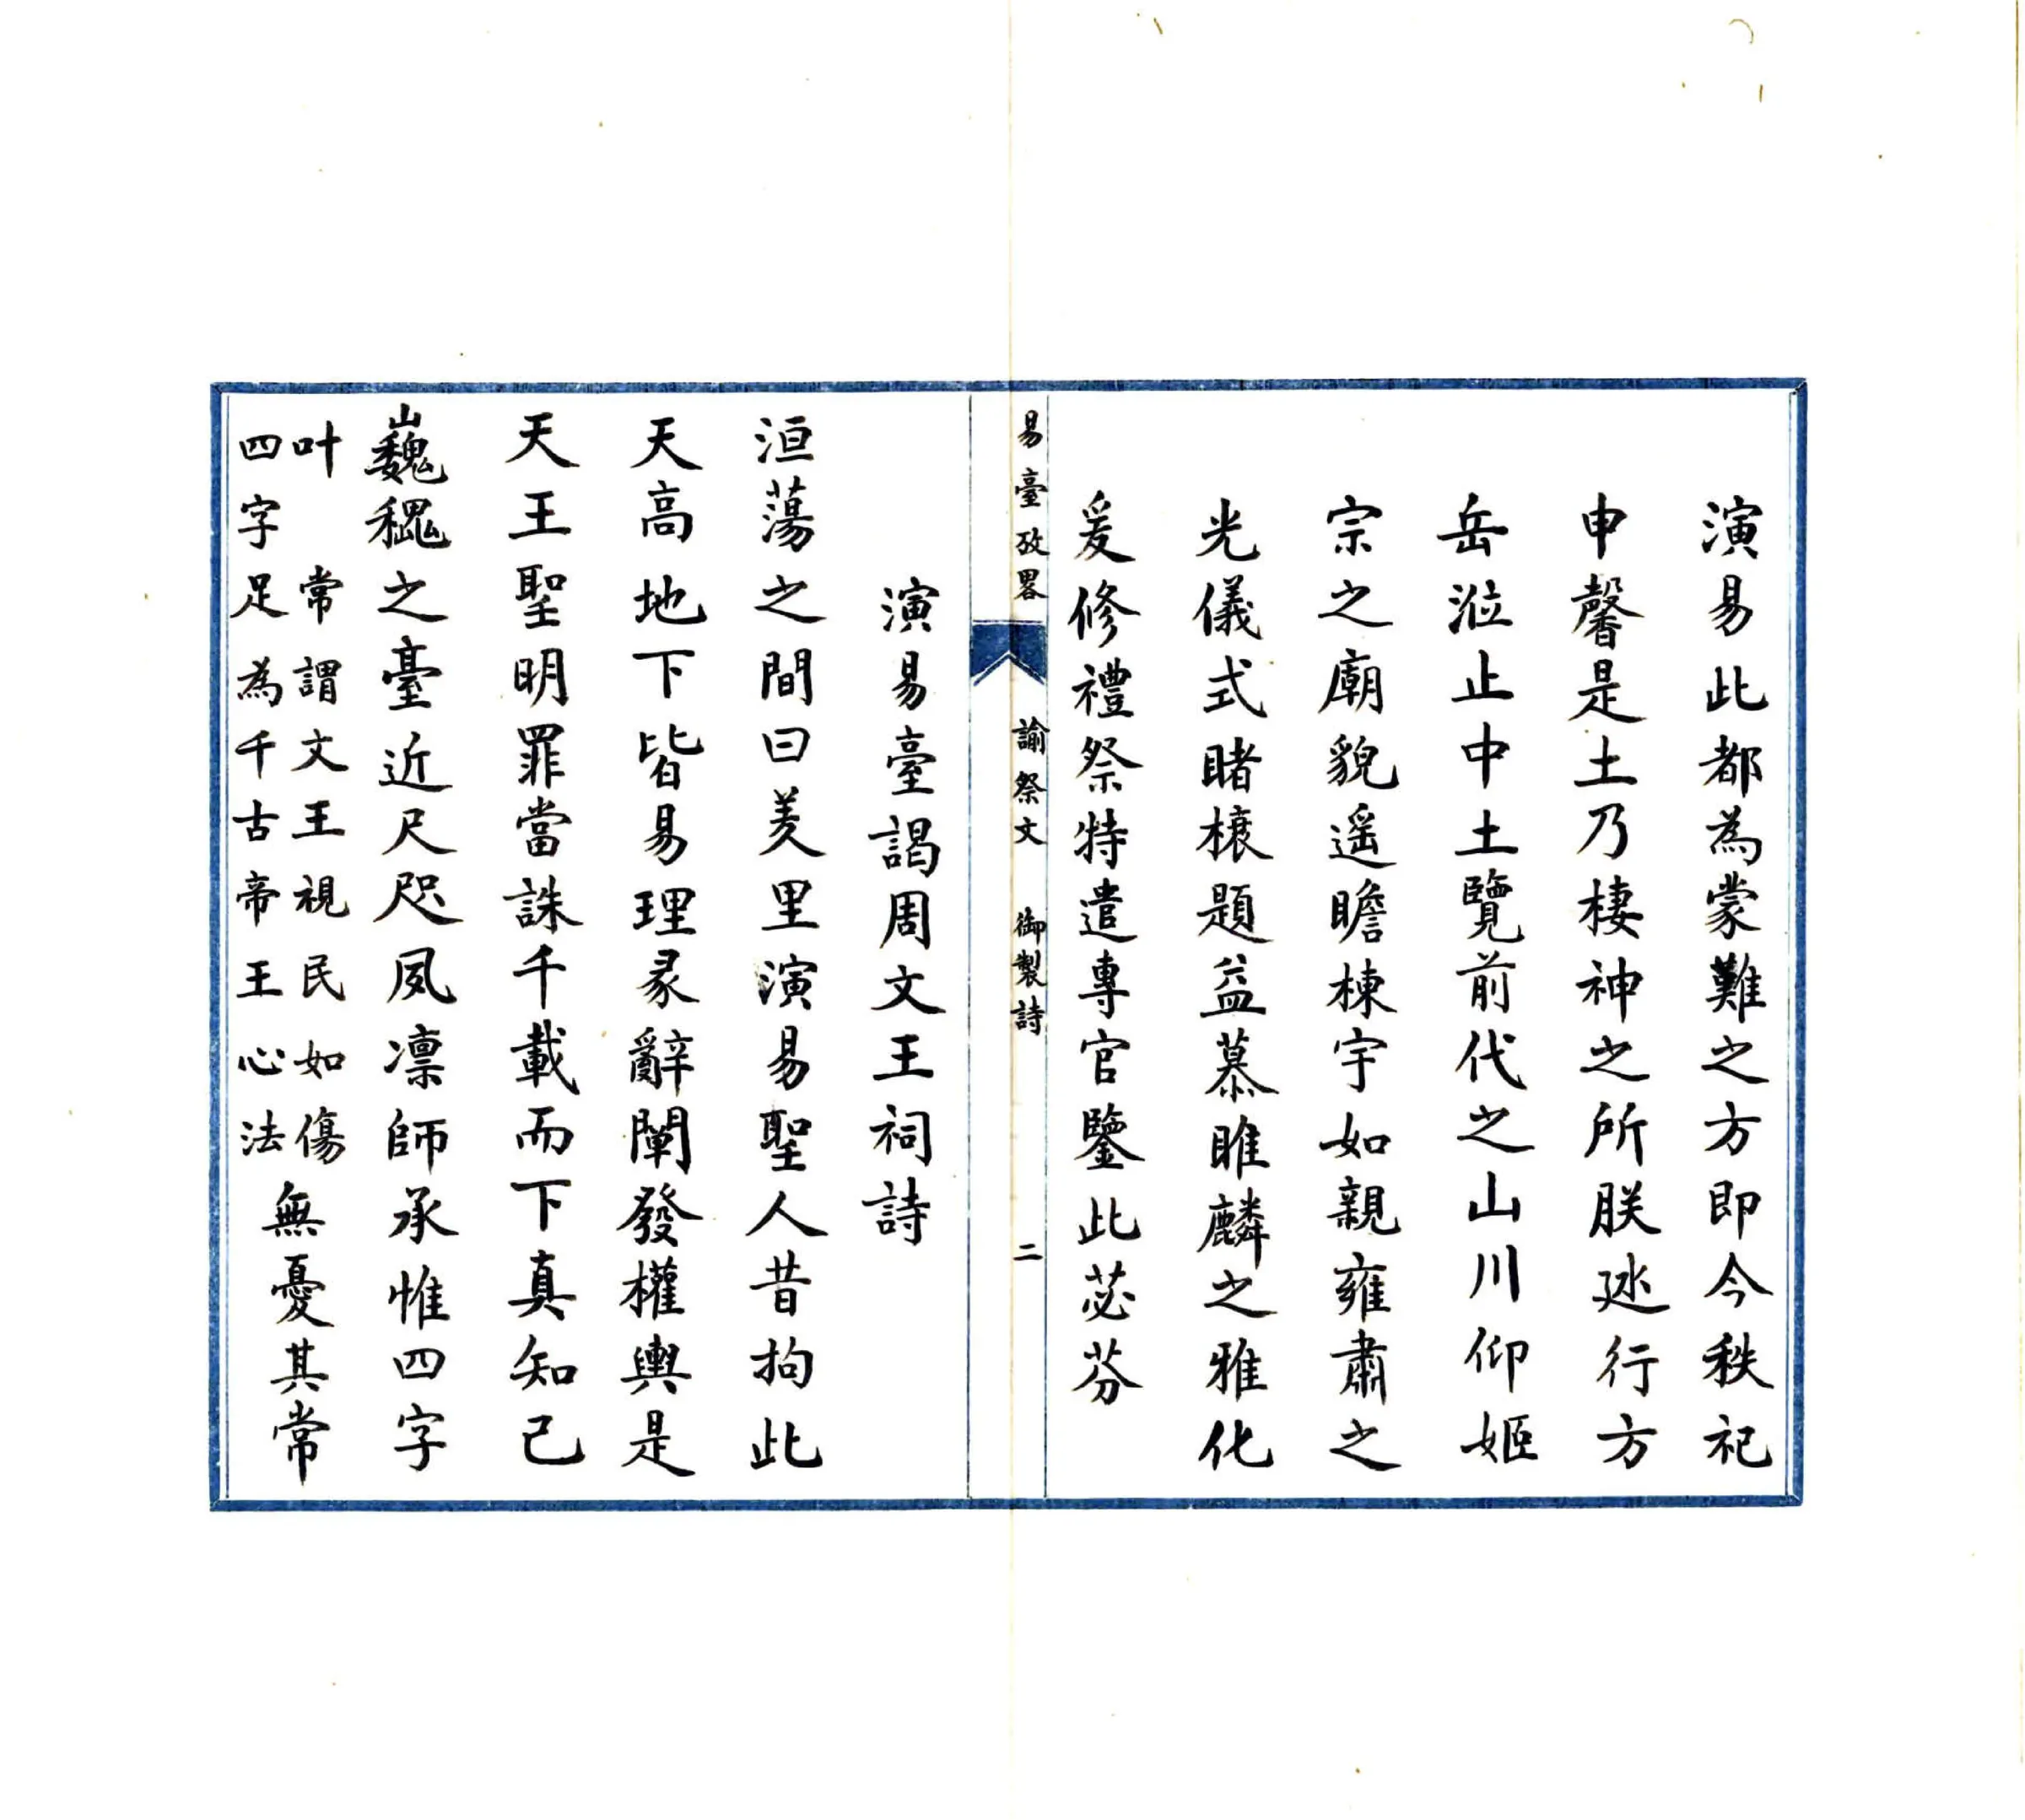 演易此都為蒙難之方即今秩祀
申馨是土乃棲神之所朕廵行方
岳涖止中土覽前代之山川仰姬
宗之廟貌遥瞻棟宇如親雍肅之
光儀式睹榱題益慕睢麟之雅化
爰修禮祭特遣專官鑒此苾芬
易臺攷畧 諭祭文 御製詩 二
演易臺謁周文王祠詩
洹蕩之間曰羑里演易聖人昔拘此
天高地下皆易理彖辭闡發權輿是
天王聖明罪當誅千載而下真知己
巍巍之臺近尺咫夙凛師承惟四字
叶 常謂文王視民如傷
四字足為千古帝王心法
無憂其常